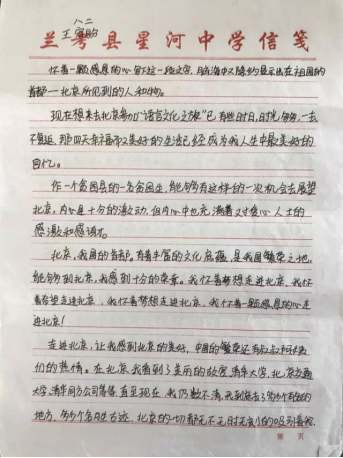 八二
王
兰考县星河中学信笺
怀着一颗感恩的心写下这一段文字,脑海中又隐约显示出在祖国的
首都—北京所见到的人和物。
现在想来去北京参加“语言文化之旅”已有些时日,时光匆匆,一去
不复返,那四天幸福而又美好的生活已经成为我人生中最美好的
回忆。
作一个贫困县的一名贫困生,能够有这样的一次机会去展望
北京,内心是十分的激动,但内心中也充满着对爱心人士的
感激和感谢。
北京,我国的首都。有着丰富的文化底蕴,是我国繁荣之地,
能够到北京,我感到十分的荣幸。我怀着梦想走进北京,我怀
着希望走进北京,我怀着梦想走进北京,我怀着一颗感恩的心走
进北京!
走进北京,让我感到北京的美好,中国的繁荣还有叔叔阿姨
们的热情。在北京我看到了美丽的故宫,清华大学,北京交通
大学,清华同方公司等等,直至现在,我仍数不清,我到底去了多少个有名的
地方,多少个名胜古迹,北京的一切都无不无时无刻的吸引着我.
第 页